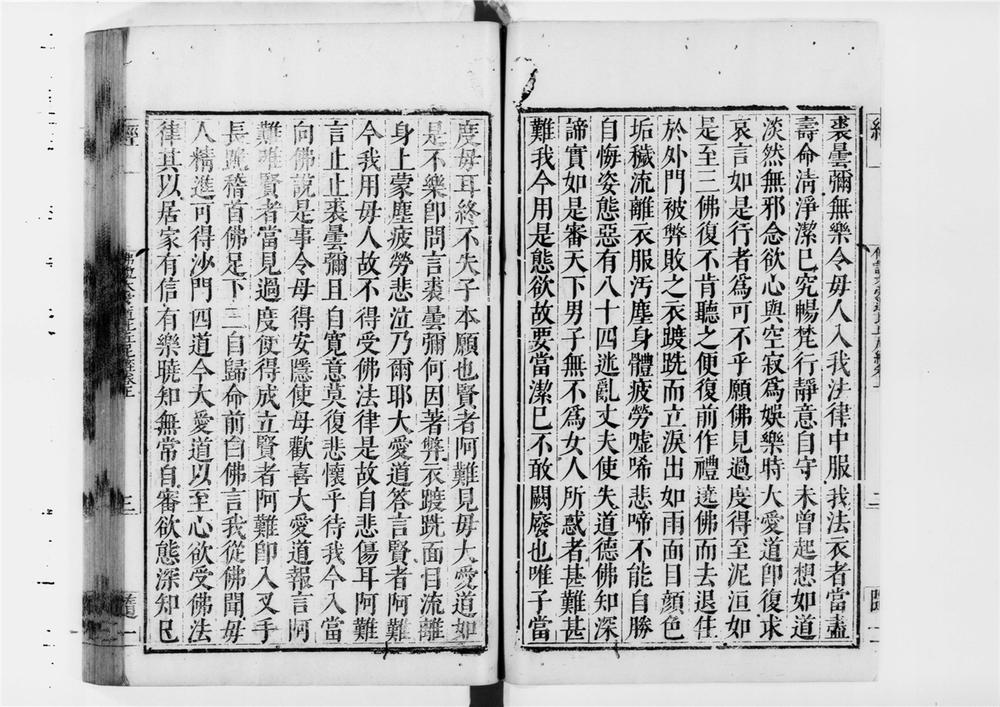 裘曇彌無樂令母人入我法律中服我法衣者當盡
壽命清淨潔已究暢梵行靜意自守未曾起想如道
淡然無邪念欲心與空寂爲娛樂時大愛道卽復求
哀言如是行者爲可不乎願佛見過度得至泥洹如
是至三佛復不肯聽之便復前作禮遶佛而去退住
於外門被弊敗之衣踱跣而立淚出如雨面目顔色
垢穢流離衣服汚塵身體疲勞噓唏悲啼不能自勝
自悔姿態惡有八十四迷亂丈夫使失道德佛知深
諦實如是審天下男子無不爲女人所惑者甚難甚
難我今用是態欲故要當潔已不敢闕廢也唯子當
度母耳終不失子本願也賢者阿難見母大愛道如
是不樂卽問言裘曇彌何因著弊衣踱跣面目流離
身上蒙塵疲勞悲泣乃爾耶大愛道答言賢者阿難
今我用母人故不得受佛法律是故自悲傷耳阿難
言止止裘曇彌且自寬意莫復悲懷乎待我今入當
向佛說是事令母得安隱使母歡喜大愛道報言阿
難唯賢者當見過度便得成立賢者阿難卽入叉手
長跪稽首佛足下三自歸命前白佛言我從佛聞母
人精進可得沙門四道今大愛道以至心欲受佛法
律其以居家有信有樂曉知無常自審欲態深知已
經一
三
隨一